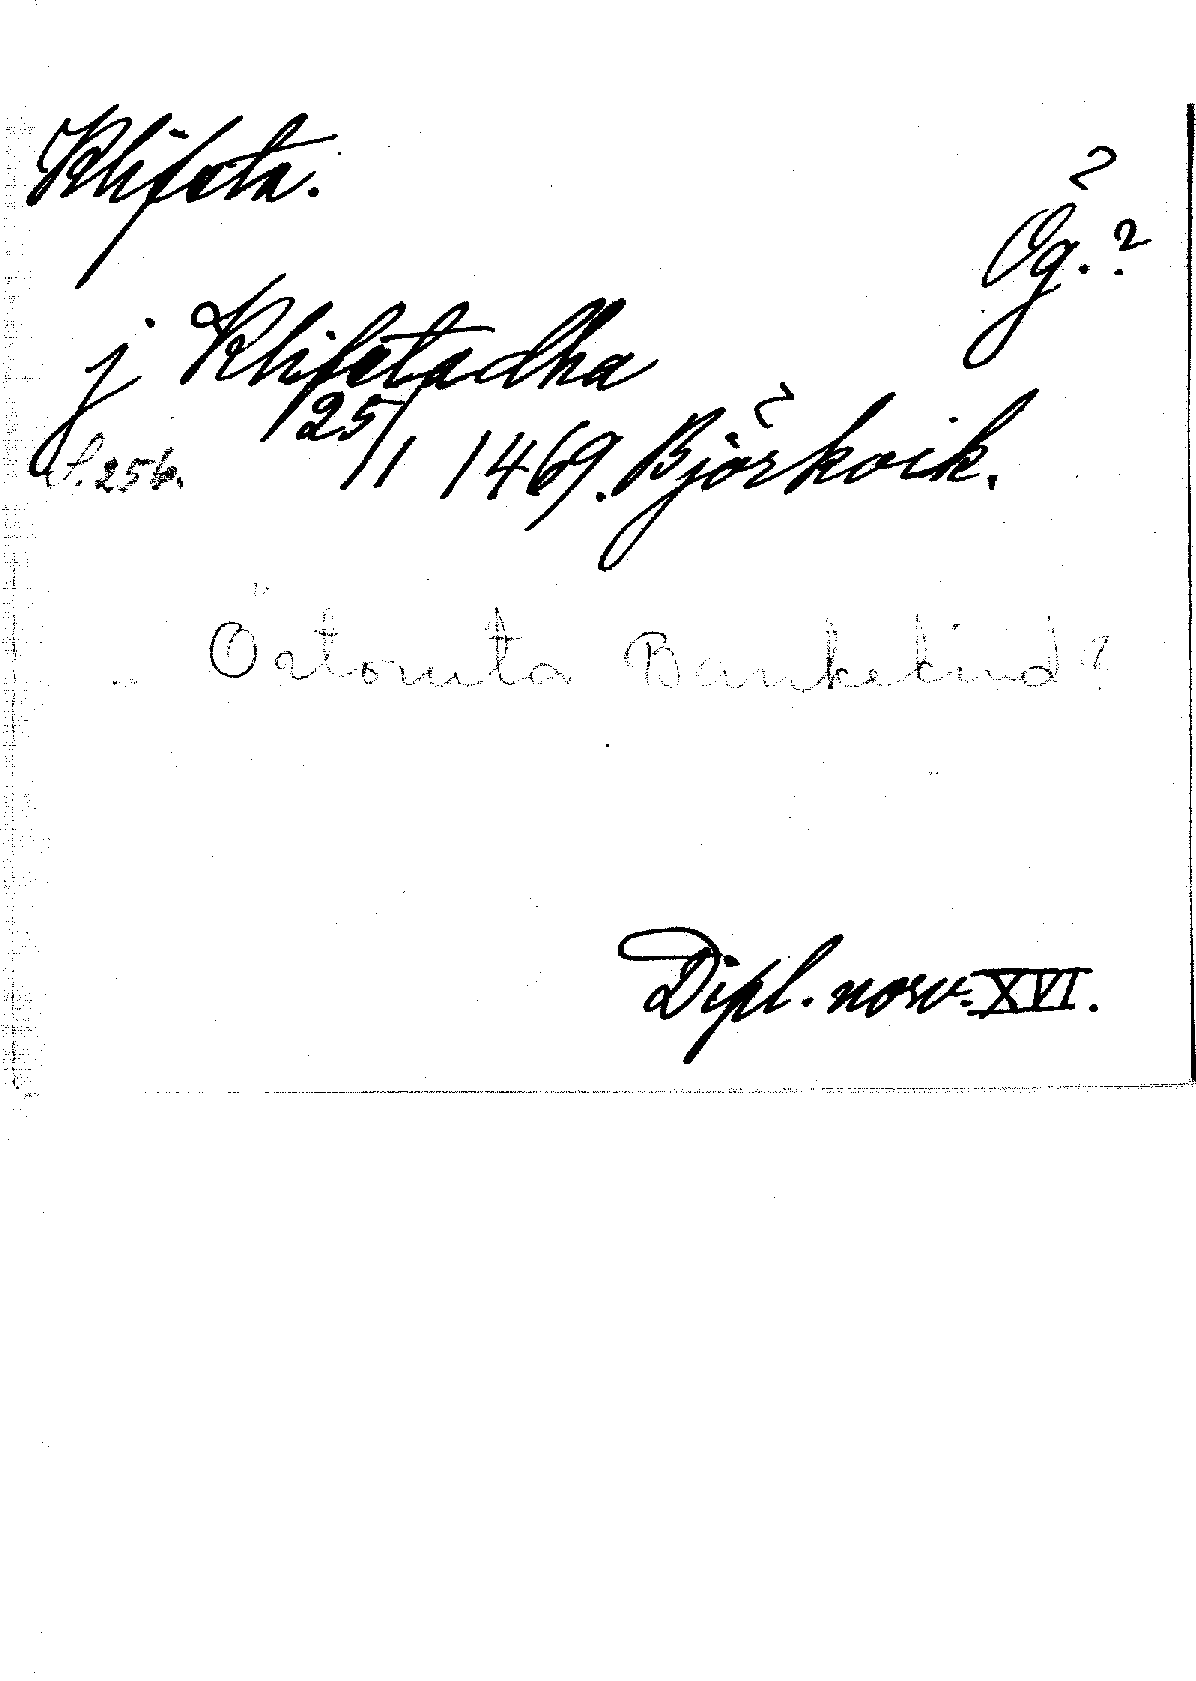 Klifsta.
Ög.?
j Klifstadha
S. 256. 25/1 1469. Björkvik.
Örtomta Bankekind?
Dipl. norv. XVI.